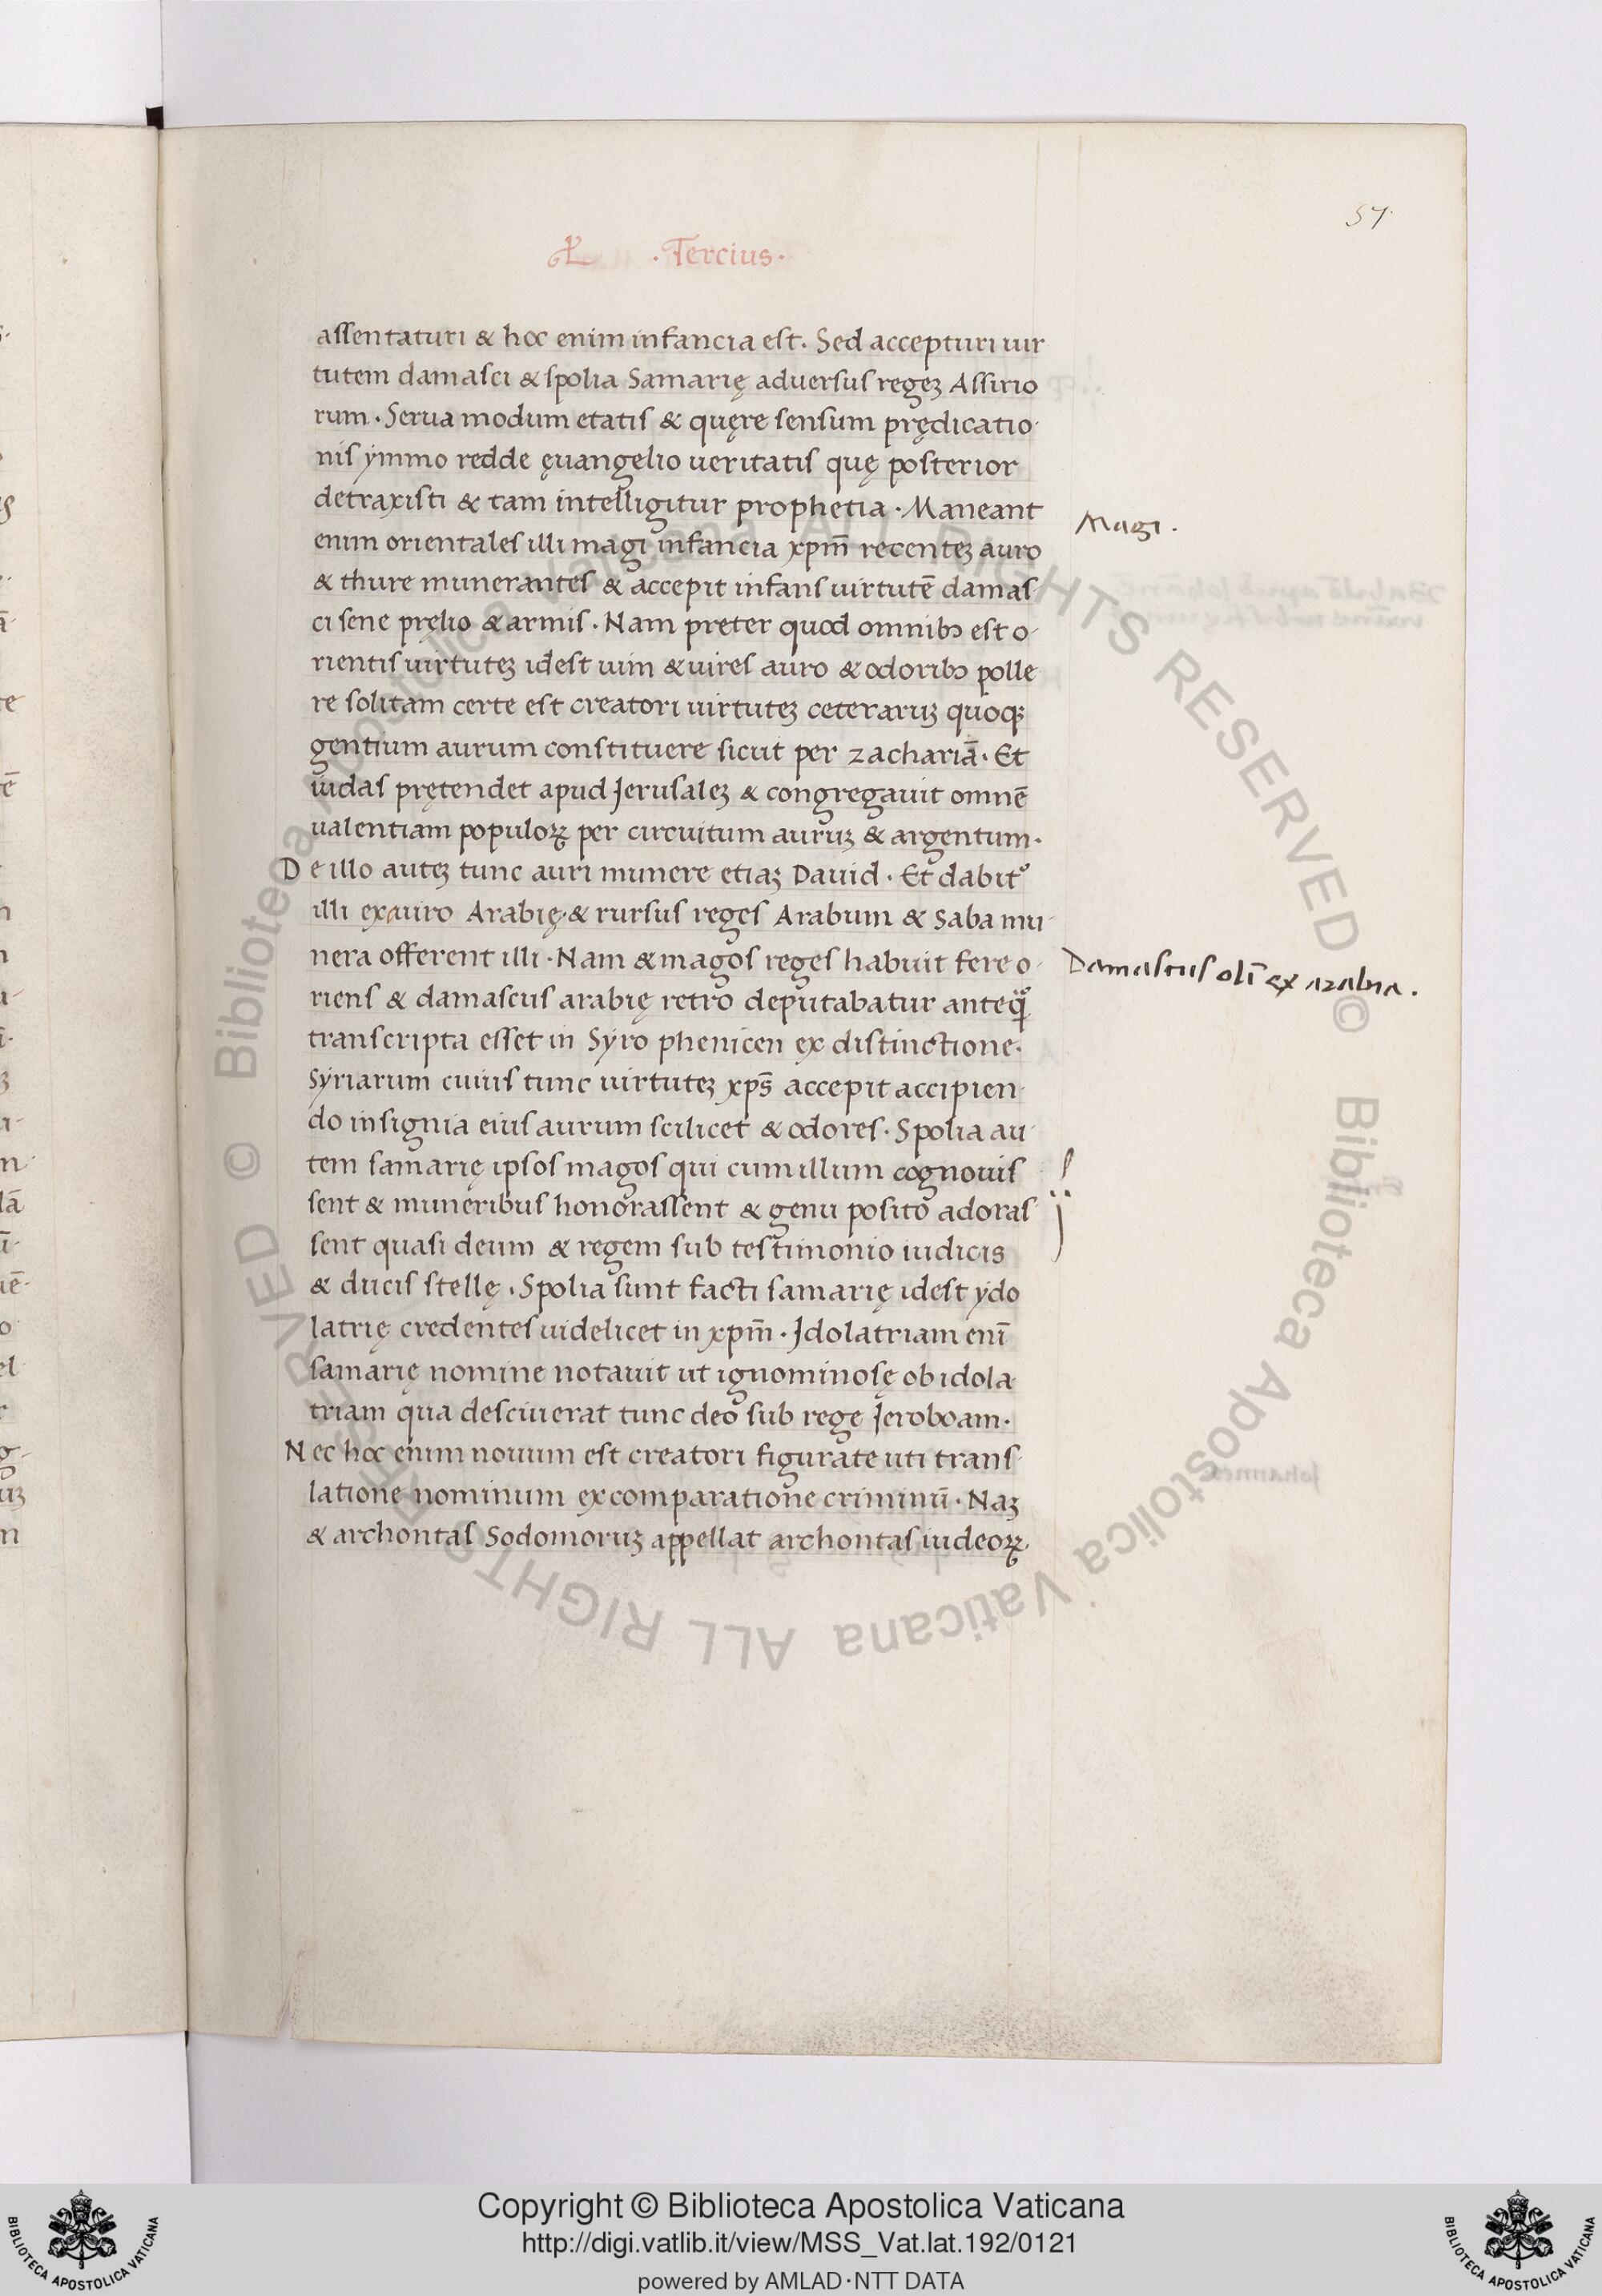 57.
·Tercius·
assentaturi & hoc enim infancia est. Sed accepturi uir
tutem damasci & spolia Samarię adversus regeȝ Assirio
rum · Serua modum etatis & quęre sensum prędicatio-
nis ymmo redde ęuangelio ueritatis quę posterior
detraxisti & tam intelligitur prophetia · Maneant
Magi ·
enim orientales illi magi infancia xpm̄ recenteȝ auro
& thure munerantes & accepit infans uirtutē damas
ci sene pręlio & armis · Nam preter quod omnibꝫ est o-
rientis uirtuteȝ idest uim & uires auro & odoribꝫ polle
re solitam certe est creatori uirtuteȝ ceteraruȝ quoqȝ
gentium aurum constituere sicut per zachariā · Et
iudas prętendet apud Jerusaleȝ & congregauit omnē
ualentiam populoꝝ per circuitum auruȝ & argentum·
De illo auteȝ tunc auri munere etiaȝ David · Et dabit᷒
illi ex auro Arabię·& rursus reges Arabum & Saba mu-
nera offerent illi · Nam & magos reges habuit fere o-
Damascus olī ex arabia .
riens & damascus arabię retro deputabatur anteq̄
transcripta esset in Syro phenicen ex distinctione·
Syriarum cuius tunc uirtuteȝ xps̄ accepit accipien-
do insignia eius aurum scilicet & odores · Spolia au-
tem samarię ipsos magos qui cum illum cognouis
sent & muneribus honorassent & genu posito adoras-
sent quasi deum & regem sub testimonio iudicis
& ducis stellę · Spolia sunt facti samarię idest ydo
latrię credentes uidelicet in xpm̄ · Jdolatriam enī
samarię nomine notauit ut ignominosę ob idola
triam qua desciuerat tunc deo sub rege Jeroboam·
Nec hoc enim nouum est creatori figurate uti trans-
latione nominum ex comparatione criminū · Naȝ
& archontas Sodomoruȝ appellat archontas iudeoꝝ·
Copyright © Biblioteca Apostolica Vaticana
http://digi.vatlib.it/view/MSS_Vat.lat.192/0121
powered by AMLAD·NTT DATA
BIBLIOTECA APOSTOLICA VATICANA
BIBLIOTECA APOSTOLICA VATICANA